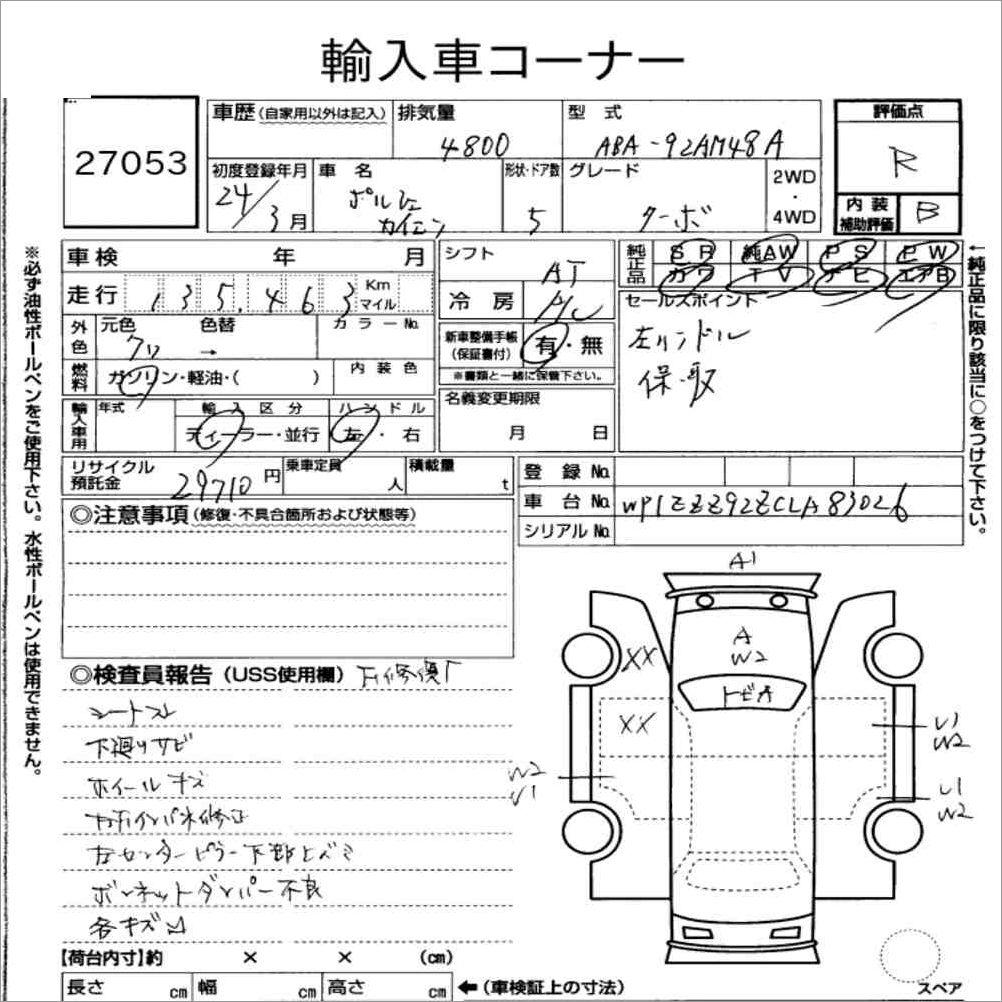 輸入車コーナー
27053
車歴(自家用以外は記入)
排気量
4800
型式
ABA-92AM48A
評価点
R
初度登録年月
24/3月
車名
ポルシェ
カイエン
形状・ドア数
5
グレード
ターボ
2WD
・
4WD
内装
補助評価
B
車検 年 月
走行 135,463 Km
マイル
シフト
AT
冷房
A/C
純正品
SR 純AW PS PW
カワ TV ナビ エアB
外色
元色 色替 カラーNo.
クロ →
燃料
ガソリン・軽油・( )
内装色
新車整備手帳
(保証書付)
有・無
※書類と一緒に保管下さい。
セールスポイント
左ハンドル
保・取
輸入車用
年式
輸入区分
ディーラー・並行
ハンドル
左・右
名義変更期限
月 日
リサイクル
預託金
29710円
乗車定員
人
積載量
t
登録No.
車台No. WP1ZZZ92ZCLA83026
シリアルNo.
◎注意事項(修復・不具合箇所および状態等)
◎検査員報告(USS使用欄)
シートスレ
下廻りサビ
ホイールキズ
左センターピラー下部
ボンネットダンパー不良
各キズ凹
A1
A
W2
トビA
XX
XX
U1
W2
W2
U1
U1
W2
【荷台内寸】約 × × (cm)
長さ cm 幅 cm 高さ cm
←(車検証上の寸法)
スペア
※必ず油性ボールペンをご使用下さい。水性ボールペンは使用できません。
←純正品に限り該当に○をつけて下さい。